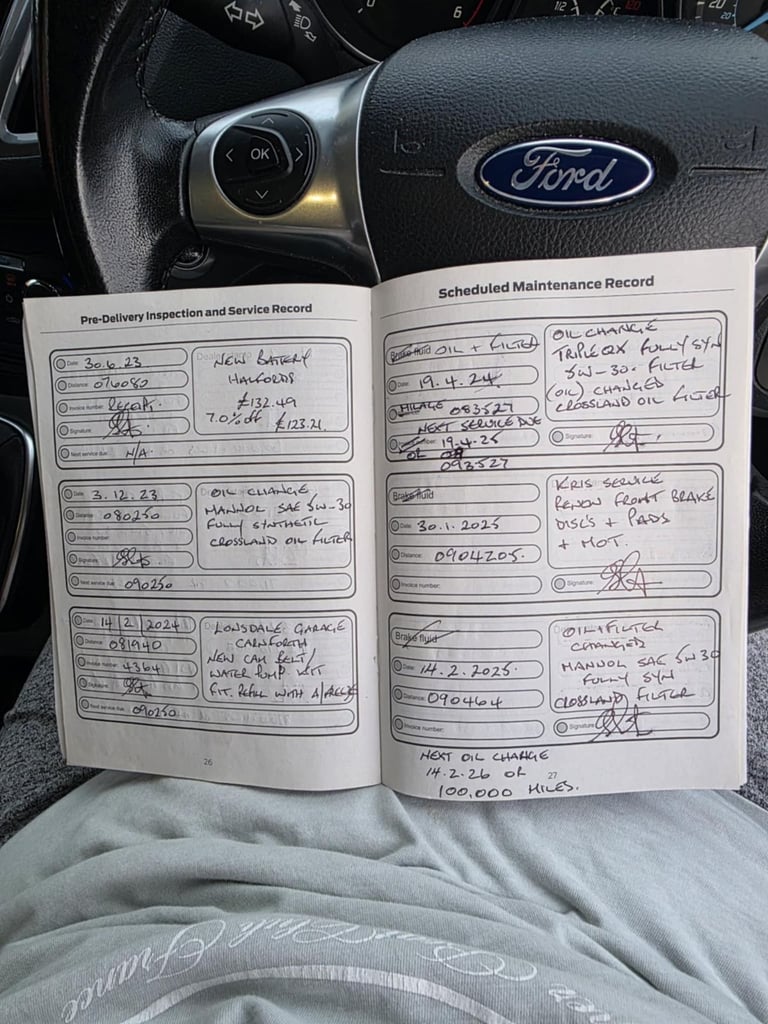 6
1/2
OK
Ford
Pre-Delivery Inspection and Service Record
Date: 30.6.23
Distance: 076080
Invoice number:
Signature:
Next service due: N/A
NEW BATTERY
HALFORDS
£132.49
7.0% off £123.21
Date: 3.12.23
Distance: 080250
Invoice number:
Signature:
Next service due: 090250
OIL CHANGE
MANNOL SAE 5W-30
FULLY SYNTHETIC
CROSSLAND OIL FILTER
Date: 14/2/2024
Distance: 081940
Invoice number: 4364
Signature:
Next service due: 090250
LONSDALE GARAGE
CARNFORTH
NEW CAM BELT/
WATER PUMP KIT
FIT. REFILL WITH A/FREEZE
26
Scheduled Maintenance Record
Brake fluid OIL + FILTER
Date: 19.4.24
MILAGE 083527
NEXT SERVICE DUE
19.4.25
OR
093527
OIL CHANGE
TRIPLE QX FULLY SYN
5W-30. FILTER
(OIL) CHANGED
CROSSLAND OIL FILTER
Signature:
Brake fluid
Date: 30.1.2025
Distance: 0904205.
Invoice number:
KRIS SERVICE
RENEW FRONT BRAKE
DISCS + PADS
+ MOT.
Signature:
Brake fluid
Date: 14.2.2025.
Distance: 090464
Invoice number:
OIL+FILTER
CHANGED
MANNOL SAE 5W30
FULLY SYN
CROSSLAND FILTER
Signature:
NEXT OIL CHANGE
14.2.26 OR
27
100,000 MILES.
France